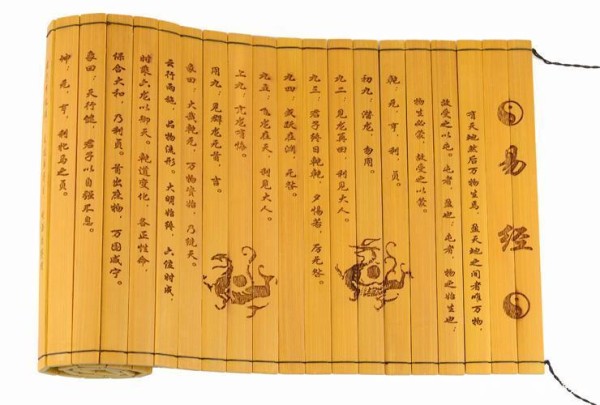 易经
有天地然后万物生焉，盈天地之间者唯万物，
故受之以屯。屯者，盈也；屯者，物之始生也；
物生必蒙，故受之以蒙。
乾：元，亨，利，贞。
初九：潜龙，勿用。
九二：见龙再田，利见大人。
九三：君子终日乾乾，夕惕若，厉无咎。
九四：或跃在渊，无咎。
九五：飞龙在天，利见大人。
上九：亢龙有悔。
用九：见群龙无首，吉。
彖曰：大哉乾元，万物资始，乃统天。
云行雨施，品物流形。大明始终，六位时成，
时乘六龙以御天。乾道变化，各正性命，
保合大和，乃利贞。首出庶物，万国咸宁。
象曰：天行健，君子以自强不息。
坤：元，亨，利牝马之贞。